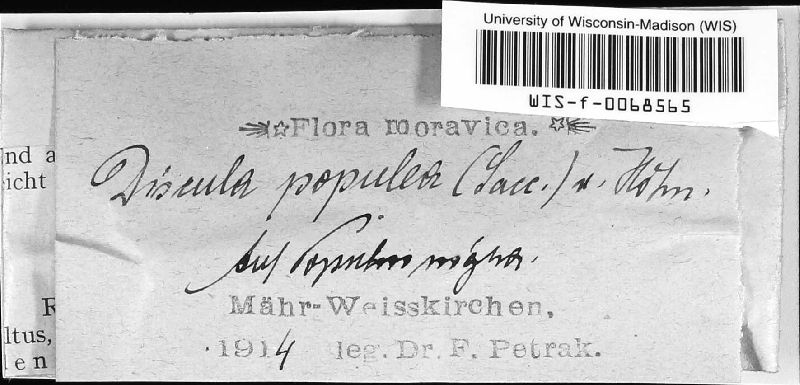 University of Wisconsin-Madison (WIS)
WIS-f-0068565
Flora moravica.
Discula populea (Sacc.) v. Höhn.
Auf Populus nigra.
Mähr-Weisskirchen,
1914 leg. Dr. F. Petrak.
nd a
eicht
R
ltus,
len